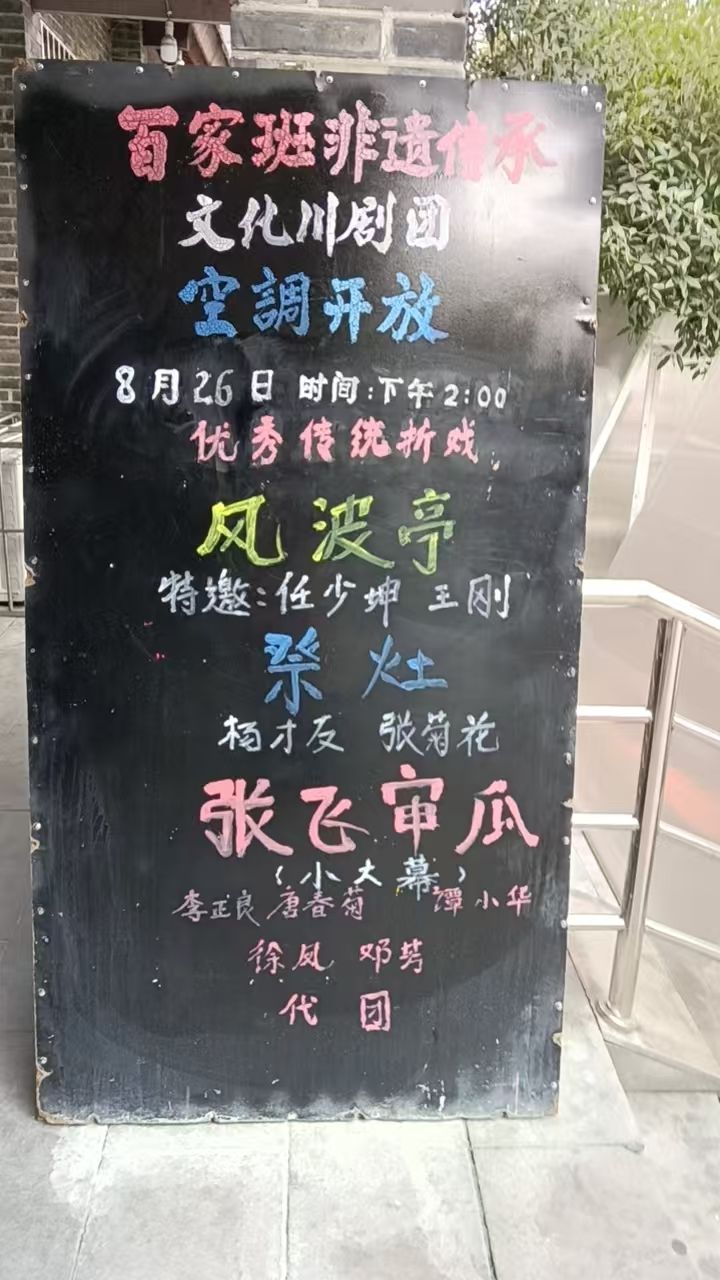 百家班非遗传承
文化川剧团
空調开放
8月26日 时间:下午2:00
优秀传统折戏
风波亭
特邀:任少坤 王刚
祭灶
杨才友 张菊花
张飞审瓜
(小大幕)
李正良 唐春菊 谭小华
徐凤 邓芳
代团